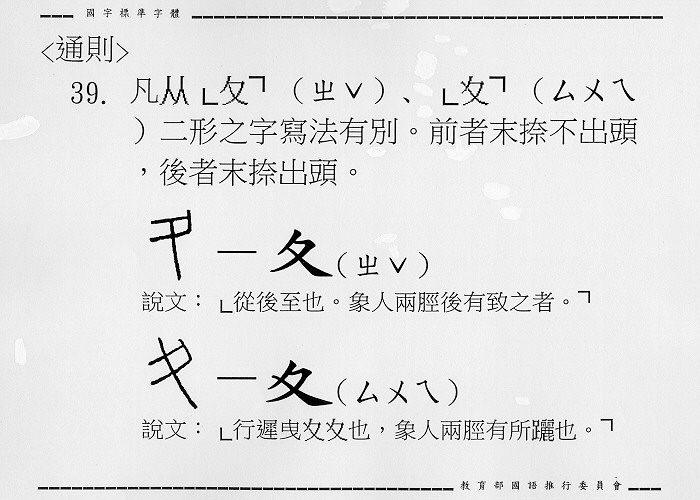 國字標準字體
<通則>
39. 凡从「夂」（ㄓˇ）、「夊」（ㄙㄨㄟ
）二形之字寫法有別。前者末捺不出頭
，後者末捺出頭。
夂(ㄓˇ)
說文：「從後至也。象人兩脛後有致之者。」
夊(ㄙㄨㄟ)
說文：「行遲曳夊夊也，象人兩脛有所躧也。」
教育部國語推行委員會